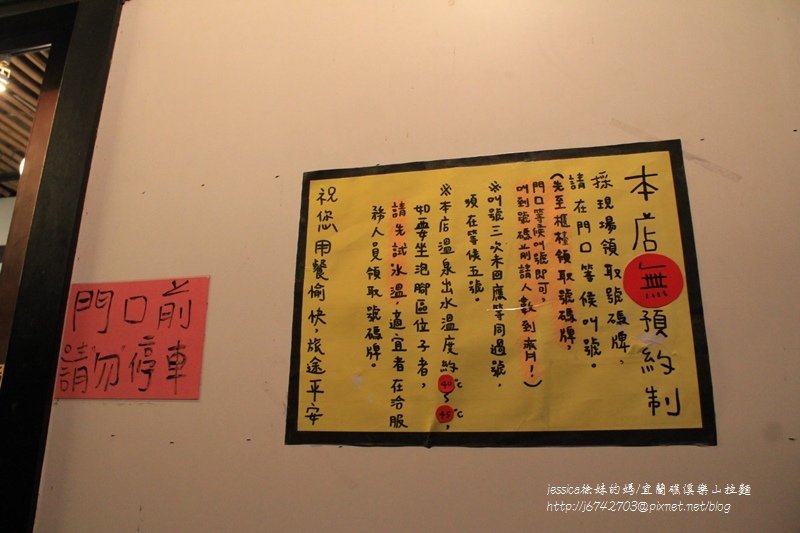 本店無預約制
採現場領取號碼牌，
請在門口等候叫號。
(先至櫃檯領取號碼牌，
門口等候叫號即可，
叫到號碼之前請人數到齊！)
※叫號三次未回應等同過號，
須在等候五號。
※本店溫泉出水溫度約40℃~45℃，
如要坐泡腳區位子者，
請先試水溫，適宜者在洽服
務人員領取號碼牌。
祝您用餐愉快，旅途平安
門口前
請"勿"停車
jessica徐妹的媽/宜蘭礁溪樂山拉麵
http://j6742703@pixnet.net/blog